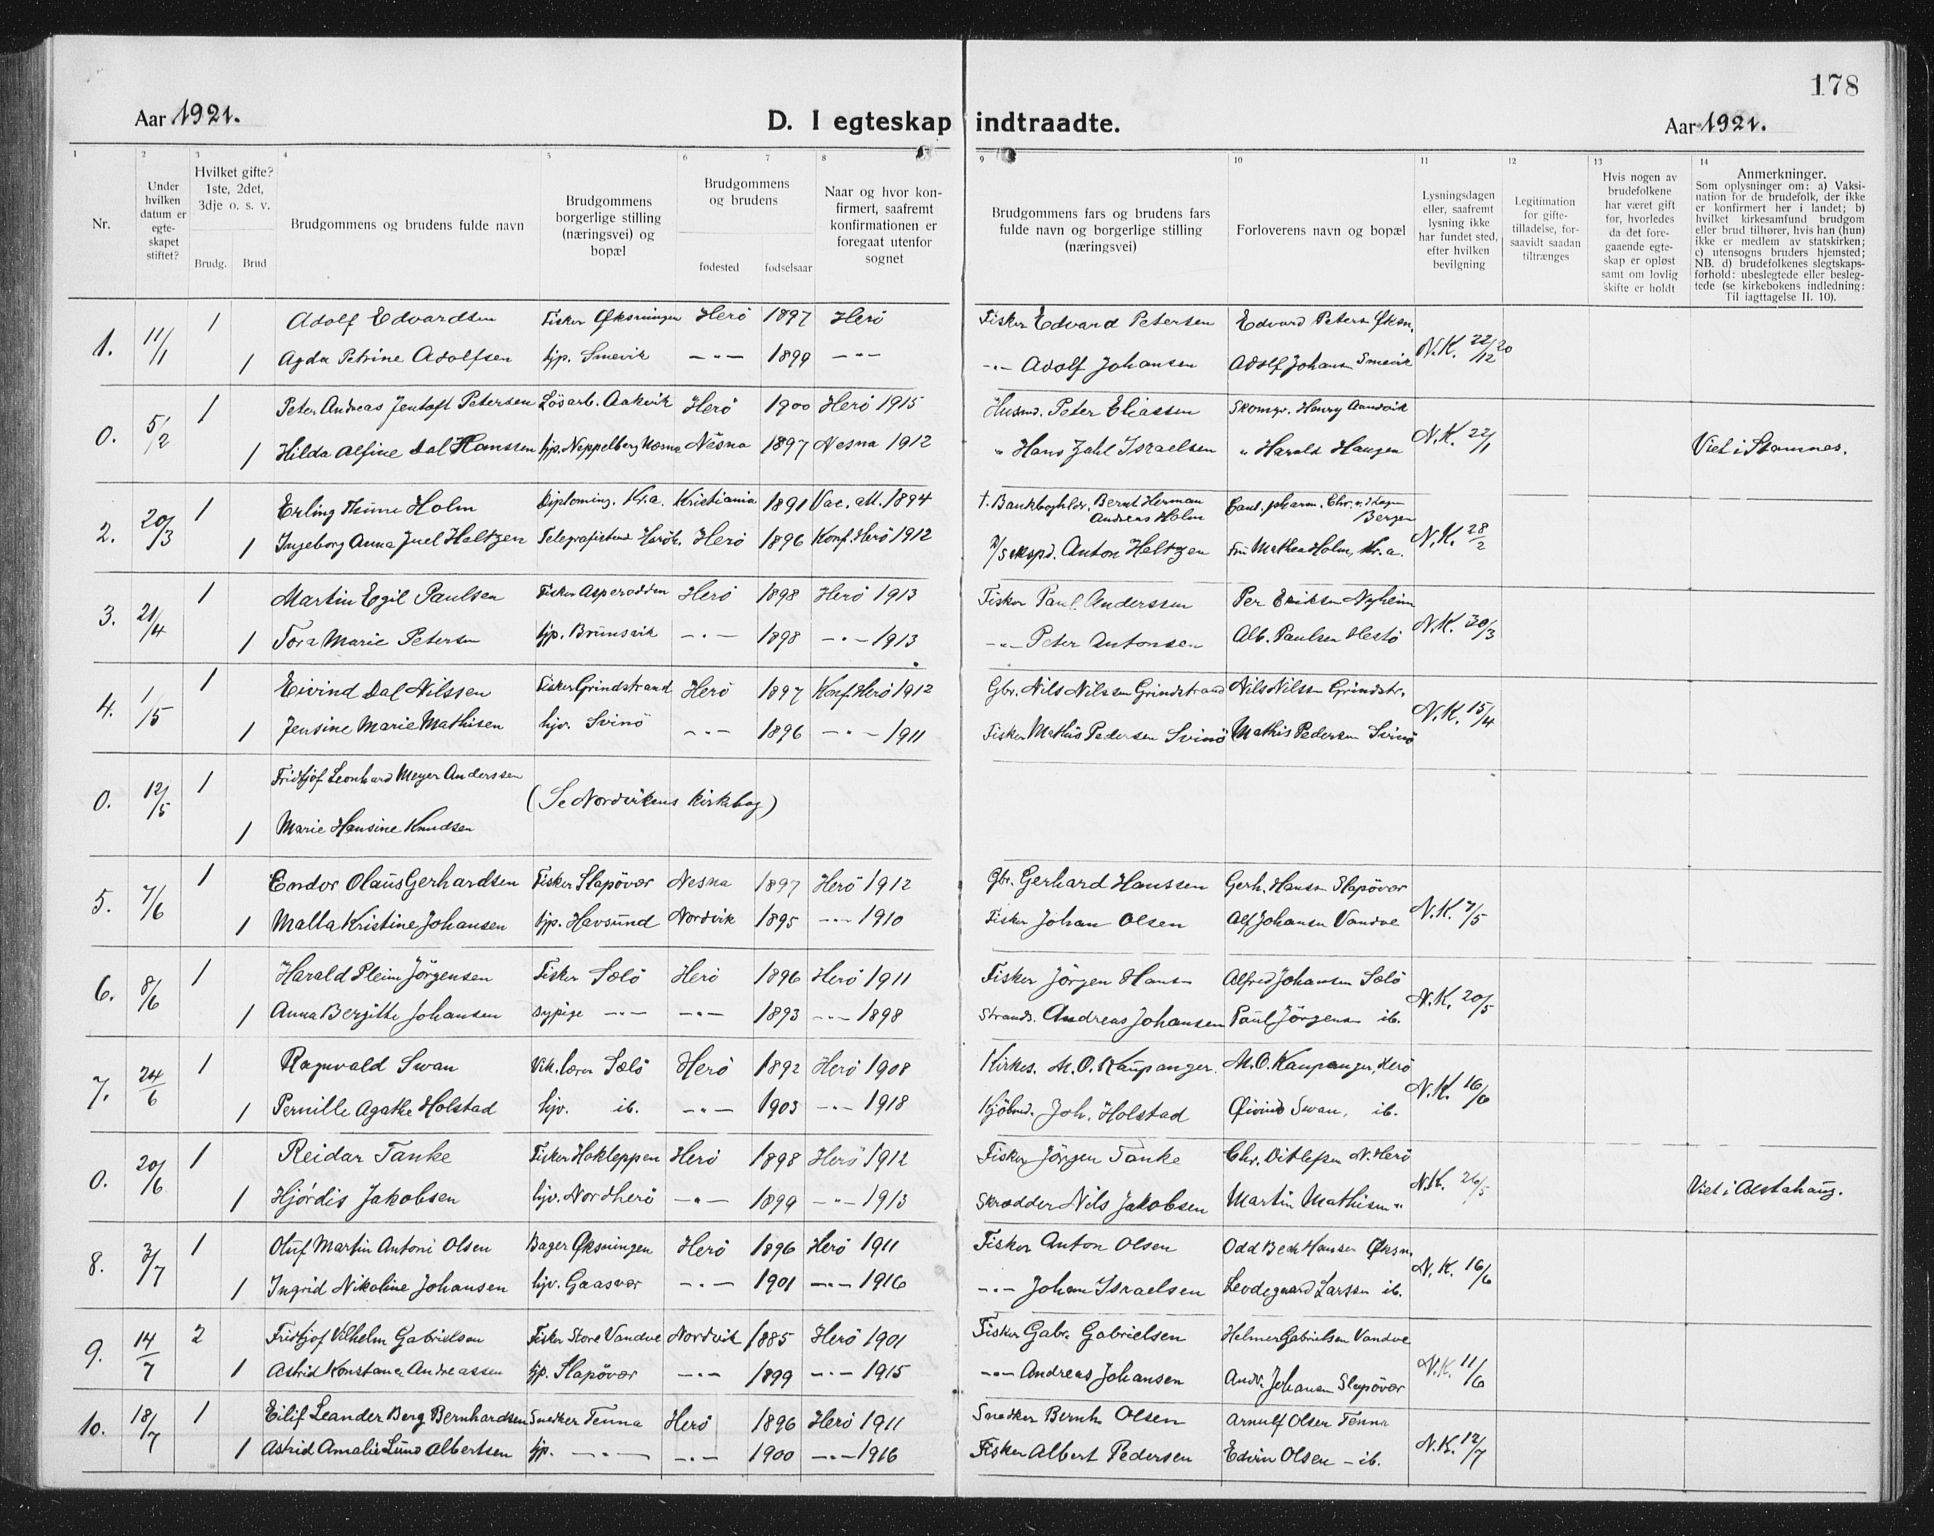 178
Aar 1921.
D. I egteskap indtraadte.
Aar 1921.
1 2 3 4 5 6 7 8 9 10 11 12 13 14
Nr.
Under hvilken datum er egte-skapet stiftet?
Hvilket gifte? 1ste, 2det, 3dje o. s. v.
Brudg. Brud
Brudgommens og brudens fulde navn
Brudgommens borgerlige stilling (næringsvei) og bopæl
Brudgommens og brudens
fødested fødselsaar
Naar og hvor kon-firmert, saafremt konfirmationen er foregaat utenfor sognet
Brudgommens fars og brudens fars fulde navn og borgerlige stilling (næringsvei)
Forloverens navn og bopæl
Lysningsdagen eller, saafremt lysning ikke har fundet sted, efter hvilken bevilgning
Legitimation for gifte-tilladelse, for-saavidt saadan tiltrænges
Hvis nogen av brudefolkene har været gift før, hvorledes da det fore-gaaende egte-skap er opløst samt om lovlig skifte er holdt
Anmerkninger.
Som oplysninger om: a) Vaksi-nation for de brudefolk, der ikke er konfirmert her i landet; b) hvilket kirkesamfund brudgom eller brud tilhører, hvis han (hun) ikke er medlem av statskirken; c) utensogns bruders hjemsted; NB. d) brudefolkenes slegtskaps-forhold: ubeslegtede eller besleg-tede (se kirkebokens indledning: Til iagttagelse II. 10).
1. 11/1 1 Adolf Edvardsen Fisker Øksningen Herö 1897 Herö Fisker Edvard Petersen Edvard Petersn Øksn. N.K. 22/12 20
1 Agda Petrine Adolfsen hjp. Smevik -"- 1899 -"- -"- Adolf Johansen Adolf Johansn Smevik
0. 5/2 1 Peter Andreas Jentoft Petersen Lösarb. Aakvik Herö 1900 Herö 1915 Husmd. Peter Eliassen Skomgr. Henry Aandvik N.K. 22/1
1 Hilda Alfine Dal Hanssen hjp. Neppelberg Nesna Nesna 1897 Nesna 1912 " Hans Jahl Israelsen " Harald Haugen Viet i Stamnes.
2. 20/3 1 Erling Thime Holm Diploming. Kr.a. Kristiania 1891 Vac. att. 1894 t. Bankboghldr. Bernt Herman Andreas Holm Cand. pharm. Chr. v. d. Lagen Bergen N.K. 28/2
1 Ingeborg Anna Juel Heltzen Telegrafistinde Heröh. Herö 1896 Konf. Herö 1912 D/S eksp. Anton Heltzen Fru Mathea Holm, Kr.a.
3. 21/4 1 Martin Egil Paulsen Fisker Asperodden Herö 1898 Herö 1913 Fisker Paul Anderssen Per Eriksen Nyheim N.K. 30/3
1 Tora Marie Petersen hjp. Brunsvik -"- 1898 -"- 1913 -"- Peter Antonsen Alb. Paulsen Hestö
4. 1/5 1 Eivind Dal Nilssen Fisker Grindstrand Herö 1897 Konf. Herö 1912 Gbr. Nils Nilssen Grindstrand Nils Nilssn Grindstr. N.K. 15/4
1 Jensine Marie Mathisen hjv. Svinö -"- 1896 -"- 1911 Fisker Mathis Pedersen Svinö Mathis Pedersen Svinö
0. 12/5 1 Fridtjöf Leonhard Meyer Anderssen (Se Nordvikens kirkebog)
1 Marie Hansine Knudsen
5. 7/6 1 Endor Olaus Gerhardsen Fisker Slapövær Nesna 1897 Herö 1912 Gbr. Gerhard Hanssen Gerh. Hanssn Slapövær N.K. 7/5
1 Malla Kristine Johansen hjp. Havsund Nordvik 1895 -"- 1910 Fisker Johan Olsen Alf Johansen Vandve
6. 8/6 1 Harald Pleim Jörgensen Fisker Sölö Herö 1896 Herö 1911 Fisker Jörgen Hansn Alfred Johansen Sölö N.K. 20/5
1 Anna Bergitte Johansen sypige -"- -"- 1893 -"- 1898 Strands. Andreas Johansen Paul Jörgensn ib.
7. 24/6 1 Ragnvald Swan Vik. lærer Sölö Herö 1892 Herö 1908 Kirkes. M. O. Kaupanger. M. O. Kaupanger, Herö N.K. 16/6
1 Pernille Agathe Holstad hjv. ib. -"- 1903 -"- 1918 Kjöbmd. Joh. Holstad Øivind Swan, ib.
0. 20/6 1 Reidar Tanke Fisker Hokleppen Herö 1898 Herö 1912 Fisker Jörgen Tanke Chr. Ditlefsen N. Herö N.K. 26/5
1 Hjördis Jakobsen hjv. Nordherö -"- 1899 -"- 1913 Skrædder Nils Jakobsen Martin Mathisen " Viet i Alstahaug.
8. 3/7 1 Oluf Martin Antoni Olsen Bager Øksningen Herö 1896 Herö 1911 Fisker Anton Olsen Odd Bech Hansen Øksn. N.K. 16/6
1 Ingrid Nikoline Johansen hjv. Gaasvær -"- 1901 -"- 1916 -"- Johan Israelsen Leodegaard Larssen ib.
9. 14/7 2 Fridtjof Vilhelm Gabrielsen Fisker Store Vandve Nordvik 1885 Herö 1901 Fisker Gabr. Gabrielsen Helmer Gabrielsen Vandve N.K. 11/6
1 Astrid Konstance Andreassen hjp. Slapövær -"- 1899 -"- 1915 -"- Andreas Johansen Andr. Johansn Slapövær
10. 18/7 1 Eilif Leander Berg Bernhardsen Snedker Tenna Herö 1896 Herö 1911 Snedker Bernh Olsen Arnulf Olsen Tenna N.K. 12/7
1 Astrid Amalie Lund Albertsen hjp. -"- -"- 1900 -"- 1916 Fisker Albert Pedersen Edvin Olsen - ib.